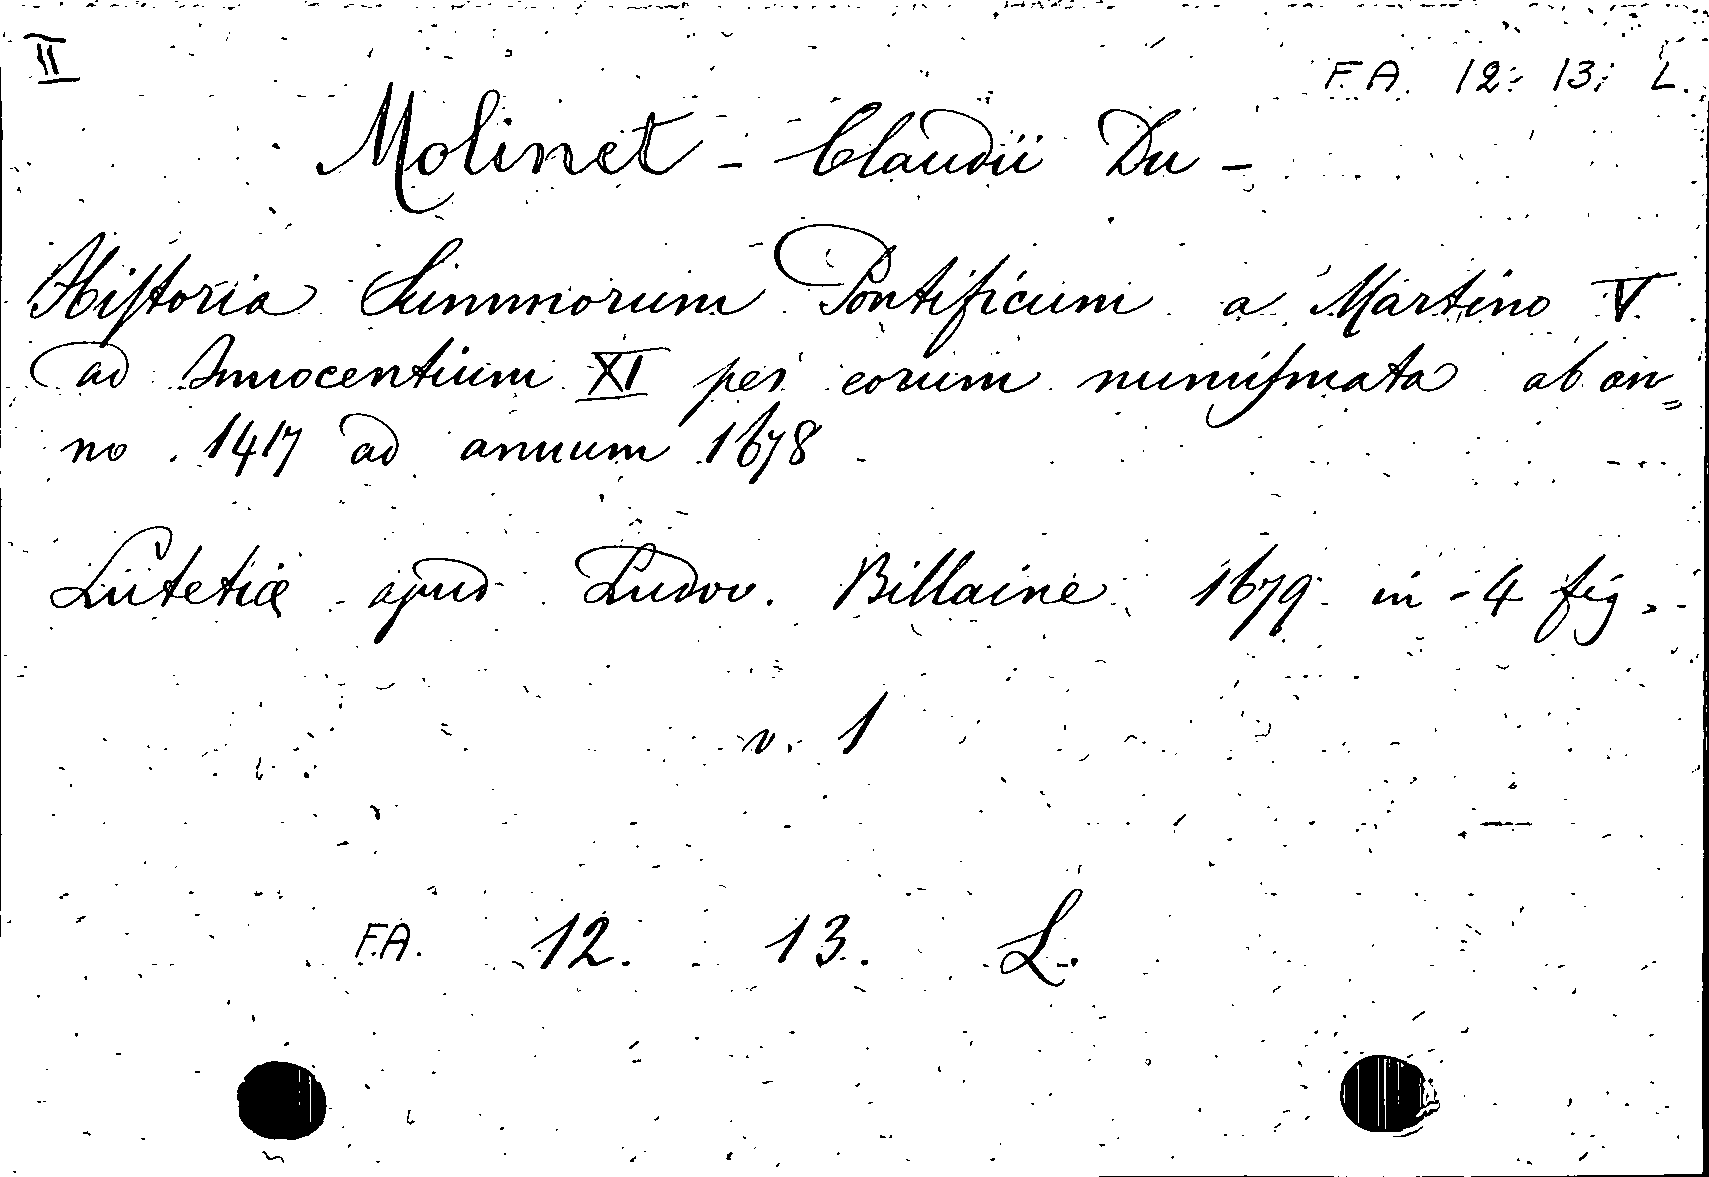 II
F.A. 12. 13. L.
Molinet - Claudii Du -
Historia Summorum Pontificum a Martino V
ad Innocentium XI per eorum numismata ab an=
no 1417 ad annum 1678
Lutetiæ apud Ludov. Billaine 1679 in-4 fig.
v. 1
F.A. 12. 13. L.